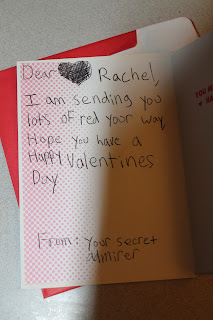 Dear Rachel,
I am sending you
lots of red your way,
Hope you have a
Happy Valentines
Day
From: your secret
admirer
YOU M